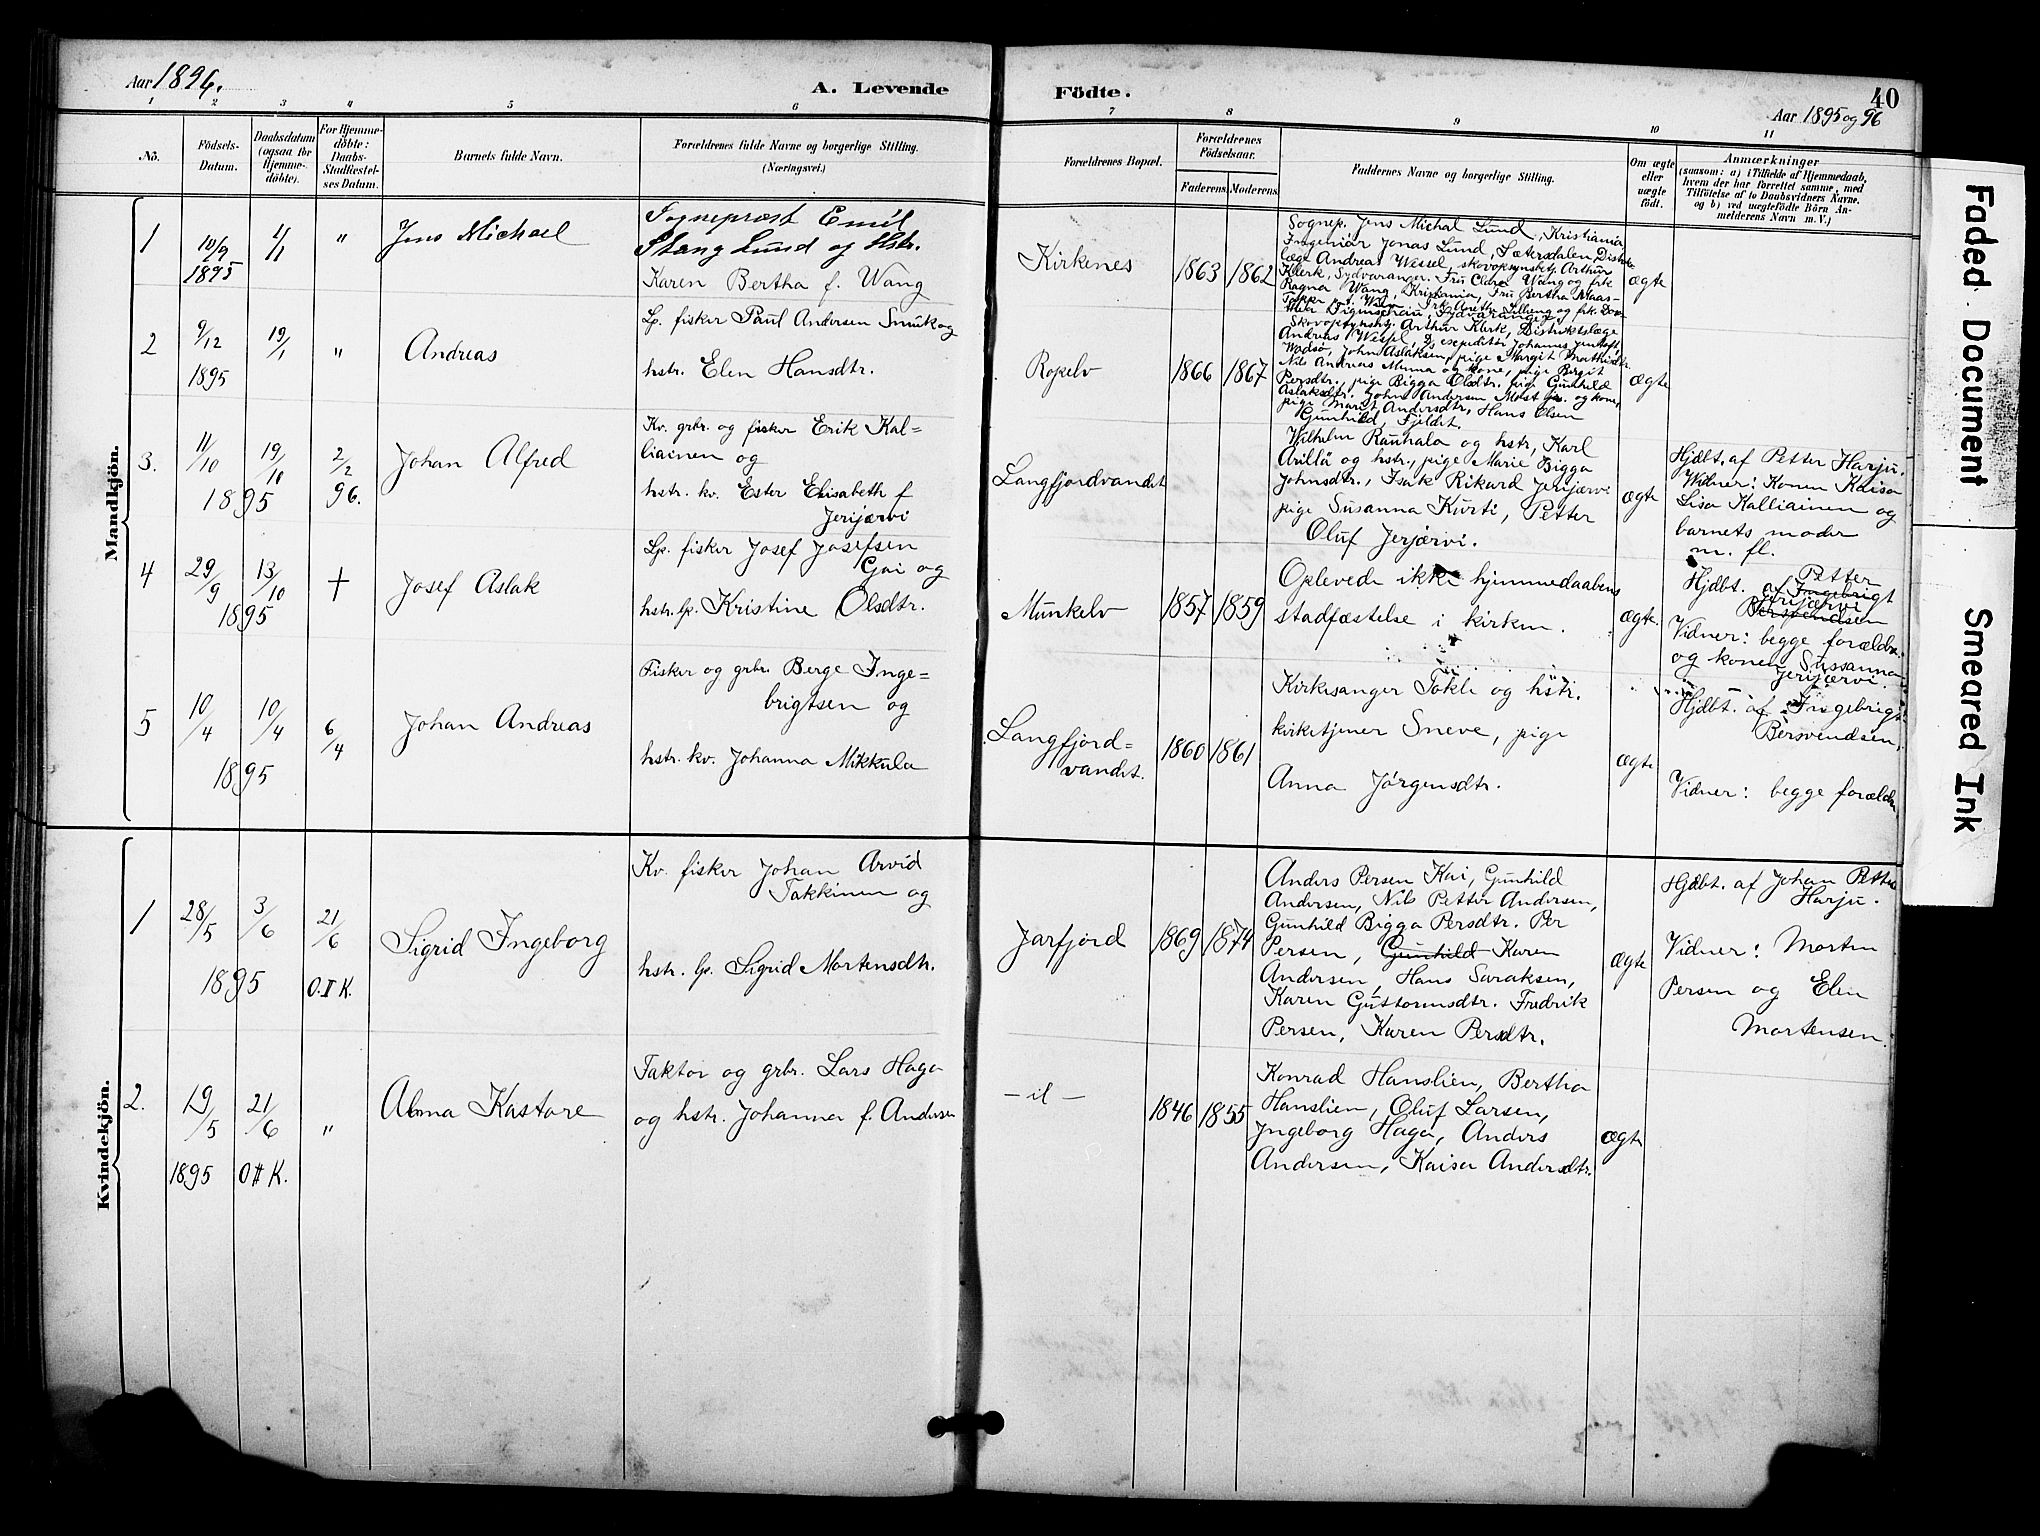 Aar 1896.
A. Levende
Födte.
40
Aar 1895 og 96
1 2 3 4 5 6 7 8 9 10 11
No.
Födsels-Datum.
Daabsdatum (ogsaa for Hjemme-döbte).
For Hjemme-döbte: Daabs-Stadfæstel-ses Datum.
Barnets fulde Navn.
Forældrenes fulde Navne og borgerlige Stilling.
(Næringsvei.)
Forældrenes Bopæl.
Forældrenes Födselsaar.
Faderens. Moderens.
Faddernes Navne og borgerlige Stilling.
Om ægte eller uægte födt.
Anmærkninger
(saasom: a) i Tilfælde af Hjemmedaab, hvem der har forrettet samme, med Tilföielse af to Daabsvidners Navne, og b) ved uægtefödte Börn An-melderens Navn m. V.)
Mandkjön.
1
10/9 1895
1/1
"
Jens Michael
Sogneprest Emil
Stang Lund og Hstr.
Karen Bertha f. Wang
Kirkenes
1863 1862
Sognep. Jens Michal Lund, Kristiania
Ingeniör Jonas Lund, Sætersdalen, Distrikts-
læge Andreas Wessel, skovopsynsbetj. Arthur
Klerk, Sydvaranger. Fru Clara Wang og frk
Ragna Wang, Kristiania, Fru Bertha Klaas-
ægte
2
9/12
1895
19/1
"
Andreas
Lp. fisker Paul Andersen Smuk og
hstr. Elen Hansdtr.
Ropelv
1866 1867
Skovopsynsbtj. Arthur Klerk, Distriktslæge
Andreas Wessel,
Wadsø, John Aslaksen, pige Margit Mathisdtr.
Nils Andreas Munna og kone, pige Bergit
Persdtr., pige Bigga Olsdtr. pige Gunhild
Aslaksdtr. John Andersen og kone,
pige Marit Andersdtr, Hans Elsen
Gunhild, Fjeldst.
ægte
3.
11/10
1895
19/10
2/2
96.
Johan Alfred
Kv. grbr. og fisker Erik Kal=
liainen og
hstr. kv. Ester Elisabeth f
Jerijærvi
Langfjordvandet
Wilhelm Rauhala og hstr, Karl
Arillä og hstr., pige Marie Bigga
Johnsdtr., Isak Rikard Jerijærvi
pige Susanna Kurti, Petter
Oluf Jerjærvi.
ægte
Hjdbt. af Petter Harju.
Widner: Konen Kaisa
Lisa Kalliainen og
barnets moder
m. fl.
4
29/9
13/10
1895
†
Josef Aslak
Lp. fisker Josef Josefsen
Gai og
hstr. lp. Kristine Olsdtr.
Munkelv
1857 1859
Oplevede ikke hjemmedaabens
stadfæstelse i kirken.
ægte.
Petter
Hjdbt. af Ingebrigt
Jerijærvi
Bersvendsen
Vidner: begge forældre
og konen Sussanna
Jerijærvi.
5
10/4
10/4
1895
6/4
Johan Andreas
Fisker og grbr. Berge Inge=
brigtsen og
hstr. kv. Johanna Mikkula
Langfjord=
vandet.
1860 1861
Kirkesanger Tokle og hstr.
kirketjener Sneve, pige
Anna Jörgensdtr.
ægte
Hjdbt. af Ingebrigt
Bersvendsen,
Vidner: begge forældre
Kvindekjön.
1
28/5
3/6
1895
21/6
O. II K.
Sigrid Ingeborg
Kv. fisker Johan Arvid
Takkinen og
hstr. lp. Sigrid Mortensdtr.
Jarfjord
1869 1874
Anders Persen Kai, Gunhild
Andersen, Nils Petter Andersen,
Gunhild Bigga Persdtr. Per
Persen, Gunhild Karen
Andersen, Hans Saraksen,
Karen Gustormsdtr. Fredrik
Persen, Karen Persdtr.
ægte
Hjdbt. af Johan Petter
Harju.
Vidner: Morten
Persen og Elen
Mortensen.
2.
19/5
1895
21/6
O II K.
"
Kastore
Faktor og grbr. Lars Haga
og hstr. Johanna f. Andersen
- il -
1846 1855
Konrad Hanslien, Bertha
Hanslien, Oluf Larsen,
Ingeborg Haga, Anders
Andersen, Kaisa Andersdtr.
ægte
Faded Document
Smeared Ink